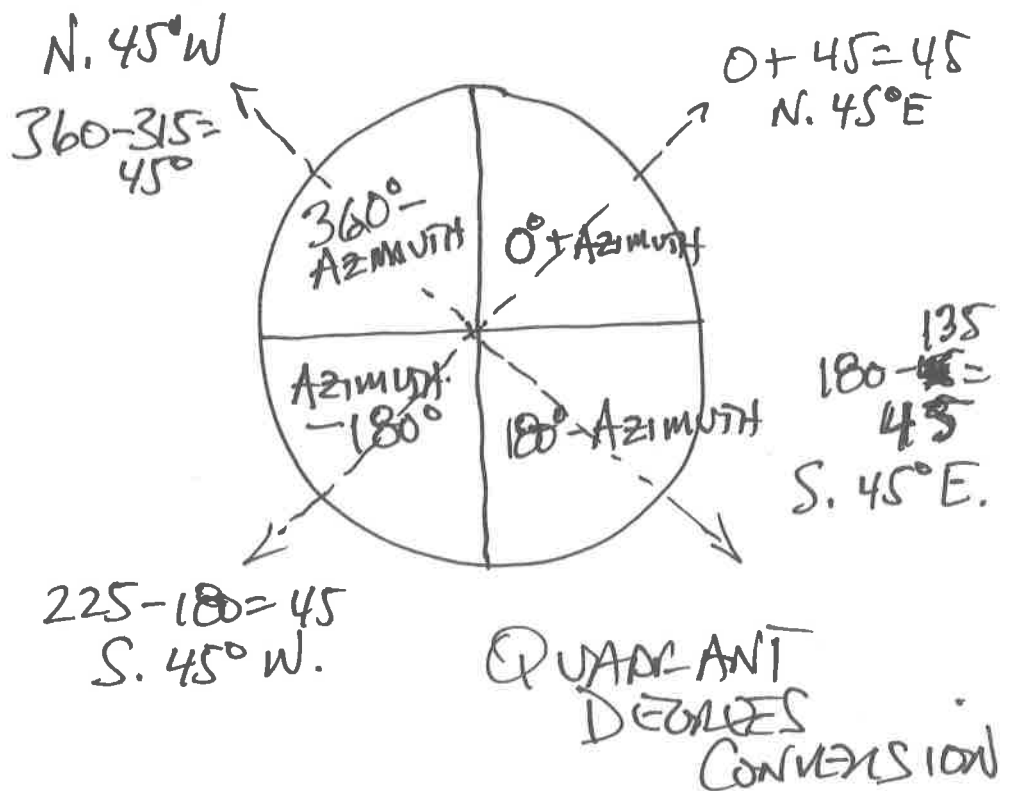 N. 45°W
360-315=
45°
0+45=45
N. 45°E
360°-
AZIMUTH
0°+AZIMUTH
AZIMUTH
-180°
180°-AZIMUTH
135
180-=
45
S. 45°E.
225-180=45
S. 45° W.
QUADRANT
DEGREES
CONVERSION